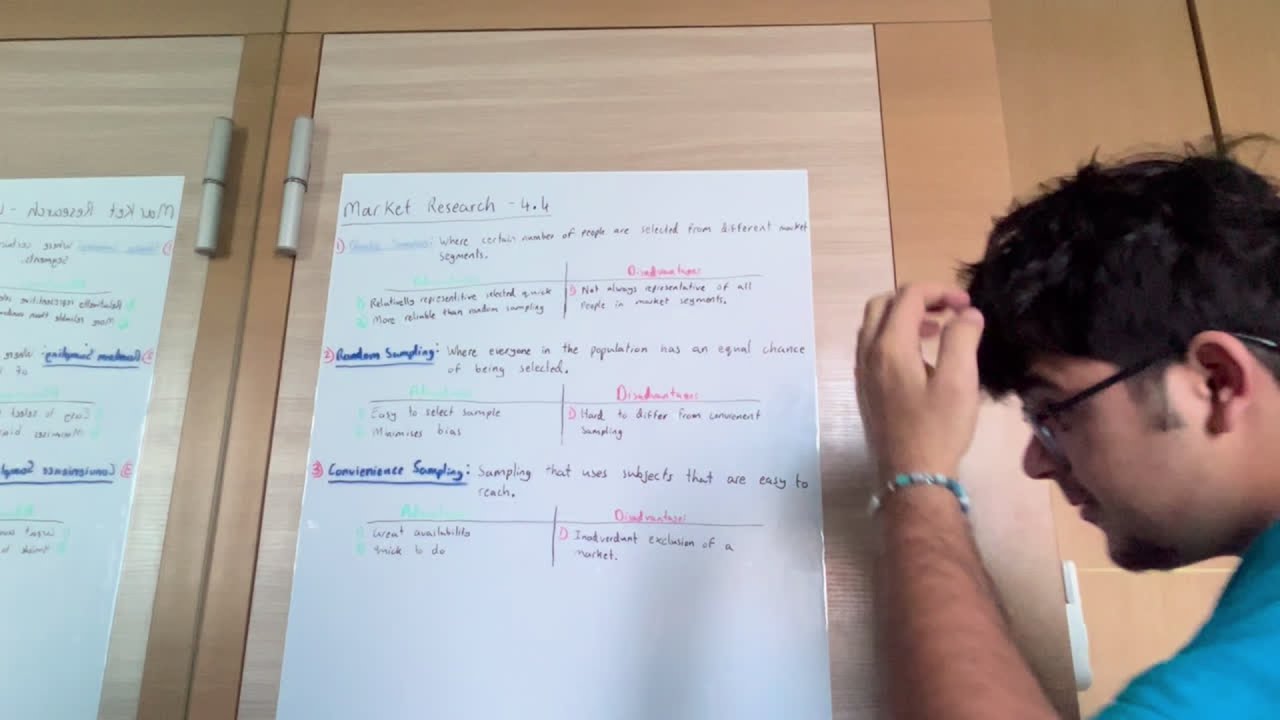 Market Research - 4.4
1) Quota Sampling: Where certain number of people are selected from different market
segments.
Advantages
Disadvantages
1) Relatively representitive selected quick
2) More reliable than random sampling
1) Not always representative of all
People in market segments.
2) Random Sampling: Where everyone in the population has an equal chance
of being selected.
Advantages
Disadvantages
1) Easy to select sample
2) Minimises bias
1) Hard to differ from convienent
Sampling
3) Convienience Sampling: Sampling that uses subjects that are easy to
reach.
Advantages
Disadvantages
1) Great availability
2) Quick to do
1) Inadverdant exclusion of a
market.